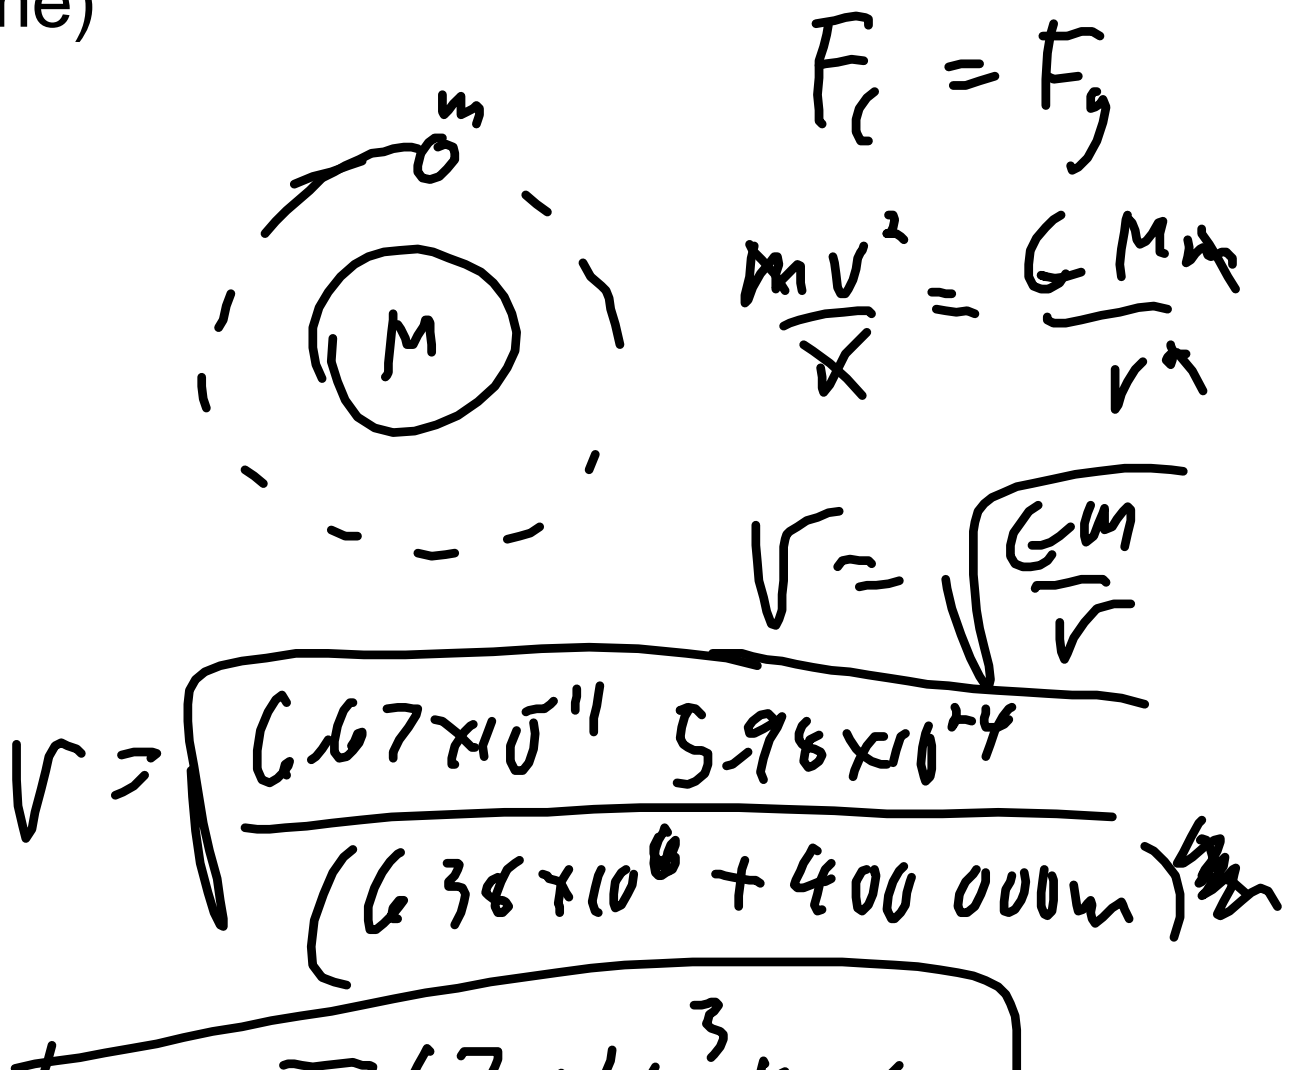 ne)
m
M
Fc = Fg
mv²/r = GMm/r²
v = √(GM/r)
v = √(6.67x10⁻¹¹ 5.98x10²⁴ / (6.38x10⁶ + 400 000m))